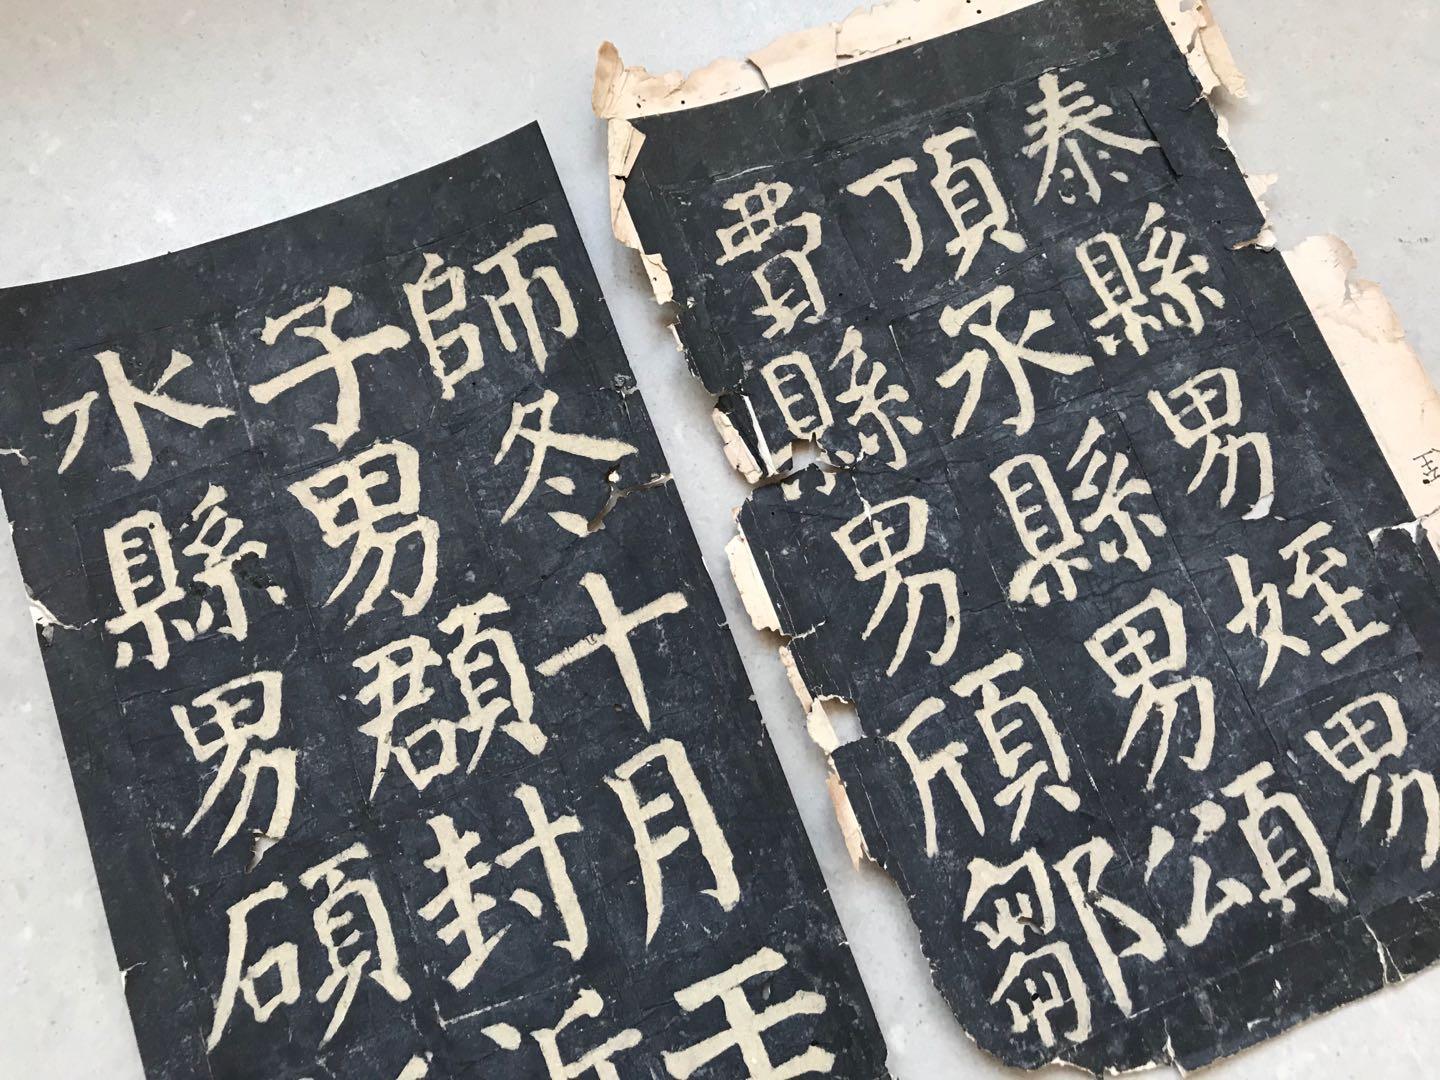 泰縣男姪男
頂丞縣男頌
費縣男頎鄒
師冬十月
子男頵封沂
水縣男碩